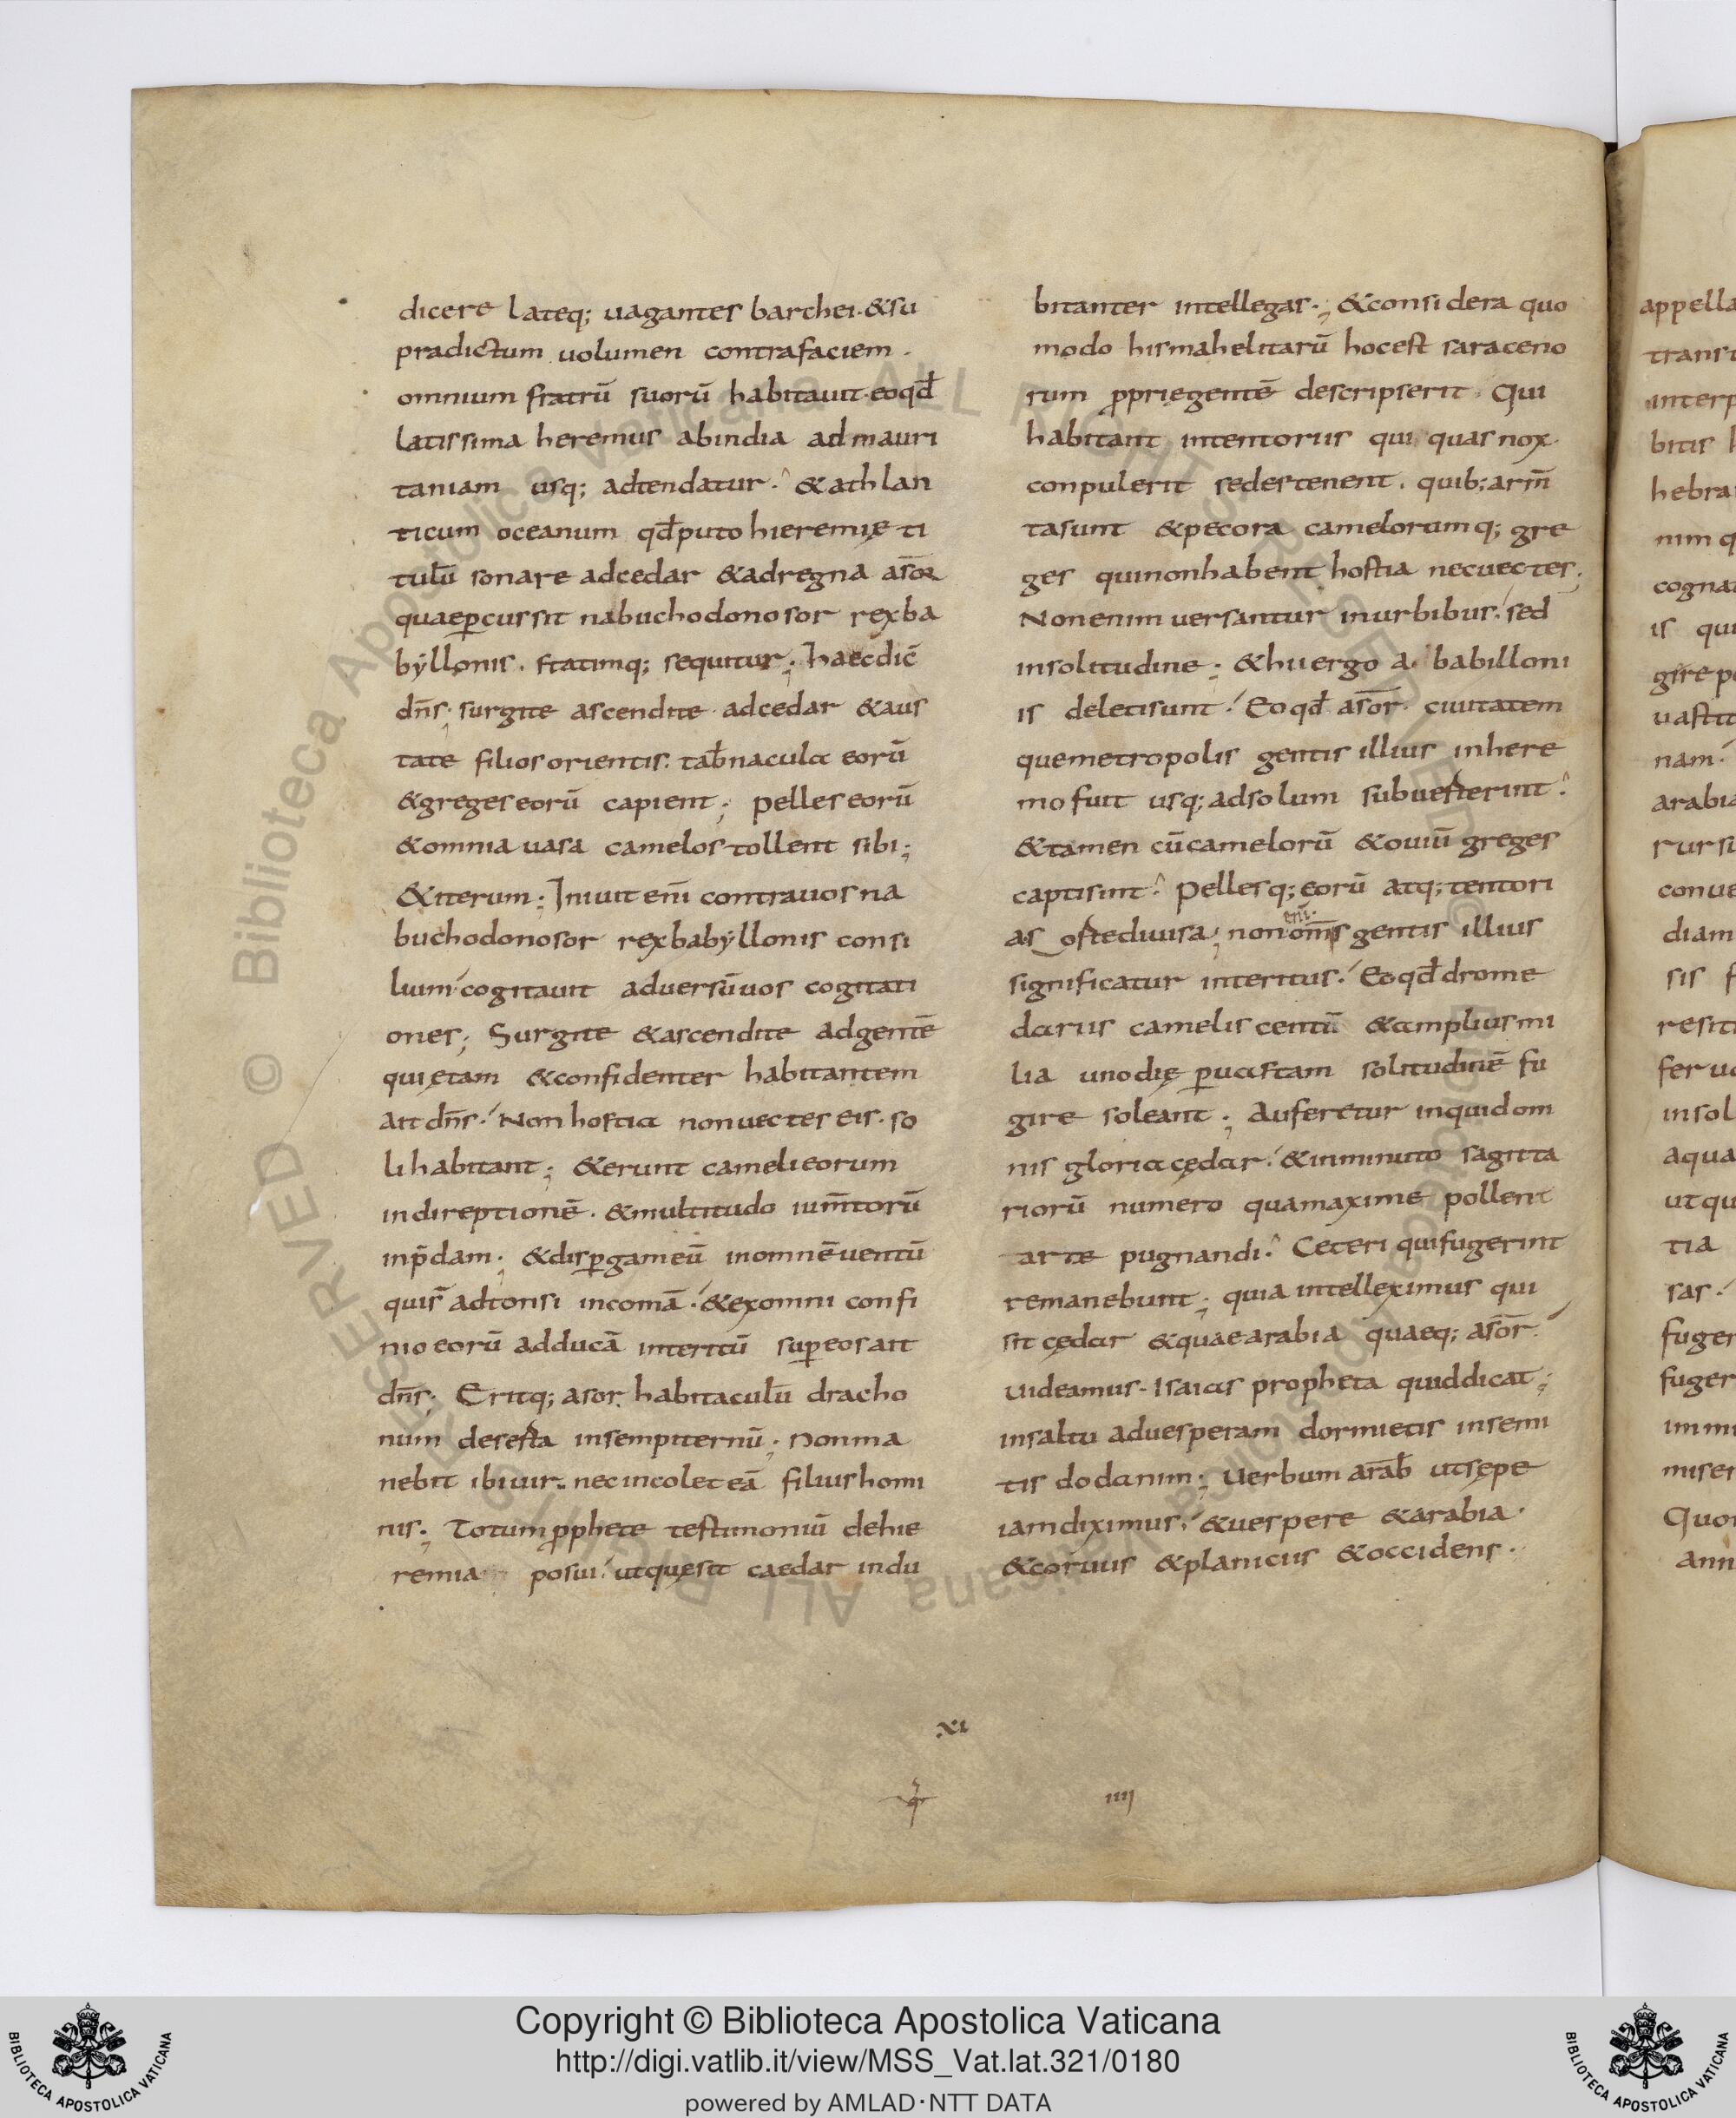 dicere lateq; uagantes barchei. &su
pradictum uolumen contrafaciem.
omnium fratrū suorū habitauit. eoqđ
latissima heremus abindia admauri
taniam usq; adtendatur. &athlan
ticum oceanum qđputo hieremię ti
tulū sonare adcedar &adregna asōr
quaeꝑcussit nabuchodonosor rexba
byllonis. statimq; sequitur; haecdic̄
dn̄s; surgite ascendite adcedar &aus
tate filiosorientis. tab̄nacula eorū
&gregeseorū capient; pelleseorū
&omnia uasa camelos tollent sibi;
&iterum; Iniuit eni̅ contrauosna
buchodonosor rexbabyllonis consi
lium. cogitauit aduersūuos cogitati
ones; Surgite &ascendite adgentē
quietam &confidenter habitantem
ait dn̄s. Non hostia nonuectes eis. so
li habitant; &erunt camelieorum
indireptionē. &multitudo ium̄torū
inp̄dam; &disꝑgameū inomnēuentū
quis̄ adtonsi incomā. &exomni confi
nio eorū adducā interitū suꝑeosait
dn̄s; Eritq; asor habitaculū dracho
num deserta insempiternū; Nonma
nebit ibiuir. necincolet eā filiushomi
nis; Totum ꝓphete testimoniū dehie
remia posui. utquęsit caedar indu
bitanter intellegas; &considera quo
modo hismahelitarū hocest saraceno
rum ꝓpriegentē descripserit. Qui
habitant intentoriis qui quas nox
conpulerit sedestenent. quib; arm̄
tasunt &pecora camelorumq; gre
ges quinonhabent hostia necuectes;
Nonenim uersantur inurbibus. sed
insolitudine; &hii ergo a babilloni
is deletisunt. Eoqđ asōr. ciuitatem
quemetropolis gentis illius inhere
mo fuit usq; adsolum subuerterint.
&tamen cūcamelorū &ouiū greges
captisint. Pellesq; eorū atq; tentori
eni̅.
as ostediuisa; non om̄is gentis illius
significatur interitus. Eoqđ drome
dariis camelis centū &amplius mi
lia unodię ꝑuastam solitudinē fu
gire soleant; Auferetur inquid om
nis gloria cędar. &inminuto sagitta
riorū numero quamaxime pollent
arte pugnandi. Ceteri quifugerint
remanebunt; quia intelleximus qui
sit cędar &quaearabia quaeq; asōr.
Uideamus. Isaias propheta quiddicat;
insaltu aduesperam dormietis insemi
tis dodanim; Uerbum arab̄ utsępe
iamdiximus. &uespere &arabia.
&coruus &planicus &occidens.
.xi
q
iiii